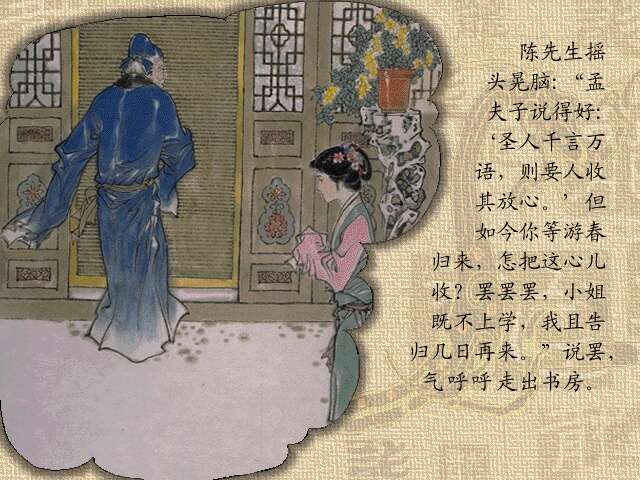 陈先生摇
头晃脑：“孟
夫子说得好：
‘圣人千言万
语，则要人收
其放心。’但
如今你等游春
归来，怎把这心儿
收？罢罢罢，小姐
既不上学，我且告
归几日再来。”说罢，
气呼呼走出书房。